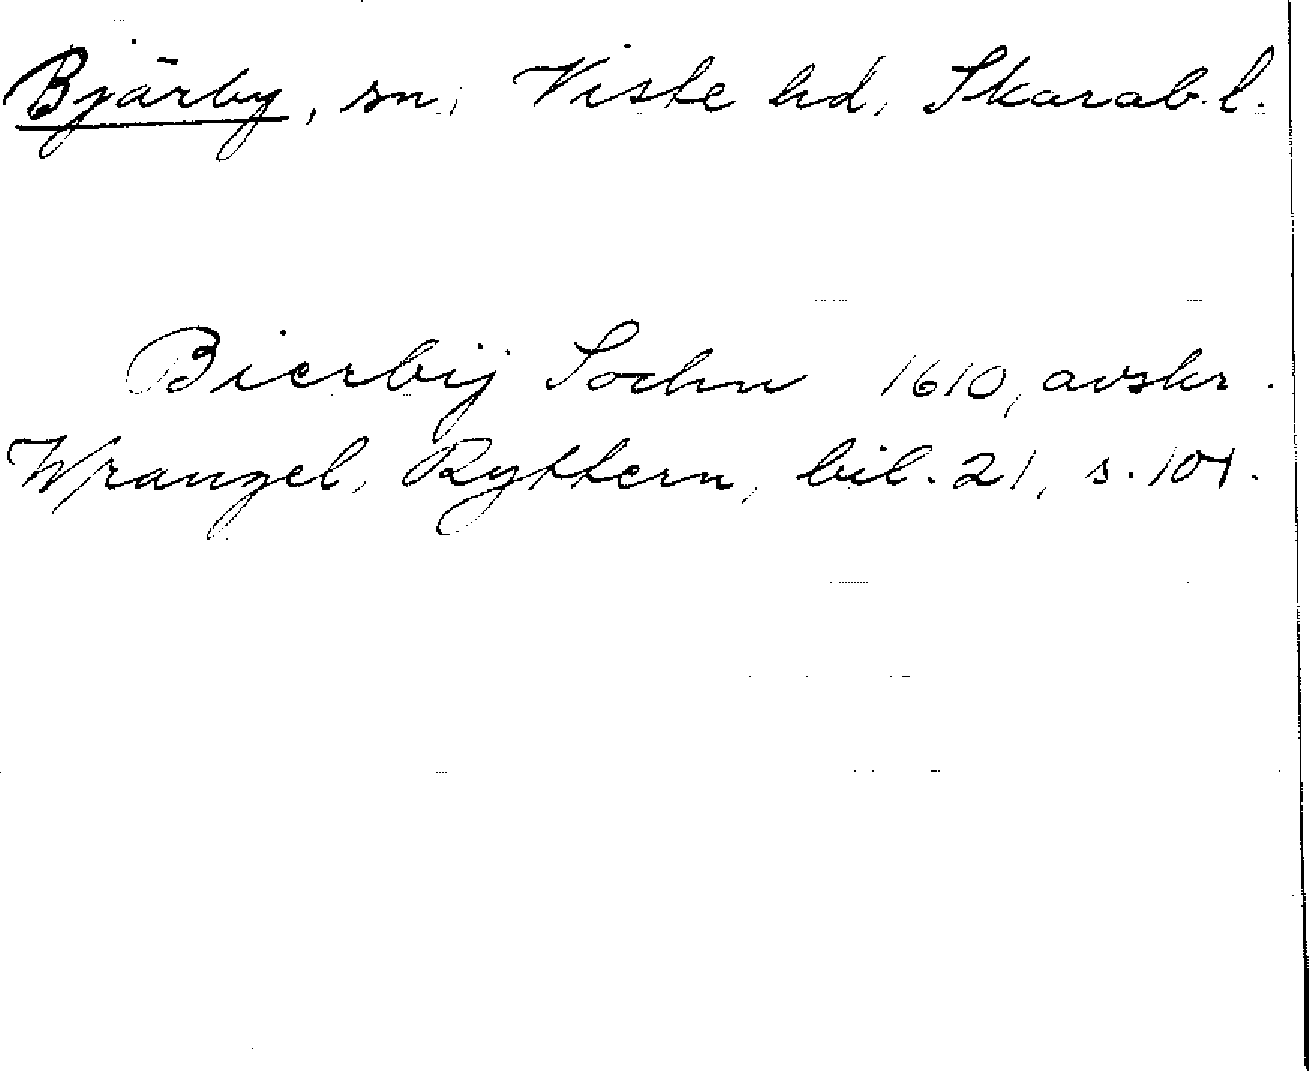 Bjärby, sn, Viste hd, Skarab.l.
Bierbij Sochn 1610, avskr.
Wrangel, Ryttern, bil. 21, s. 104.